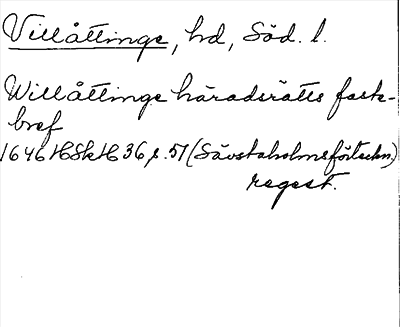 Villåttinge, hd, Söd. l.
Willåttinge häradsrätts faste-
bref
1646 HSkH 36, s. 51 (Sävstaholmsförteckn.)
regest.